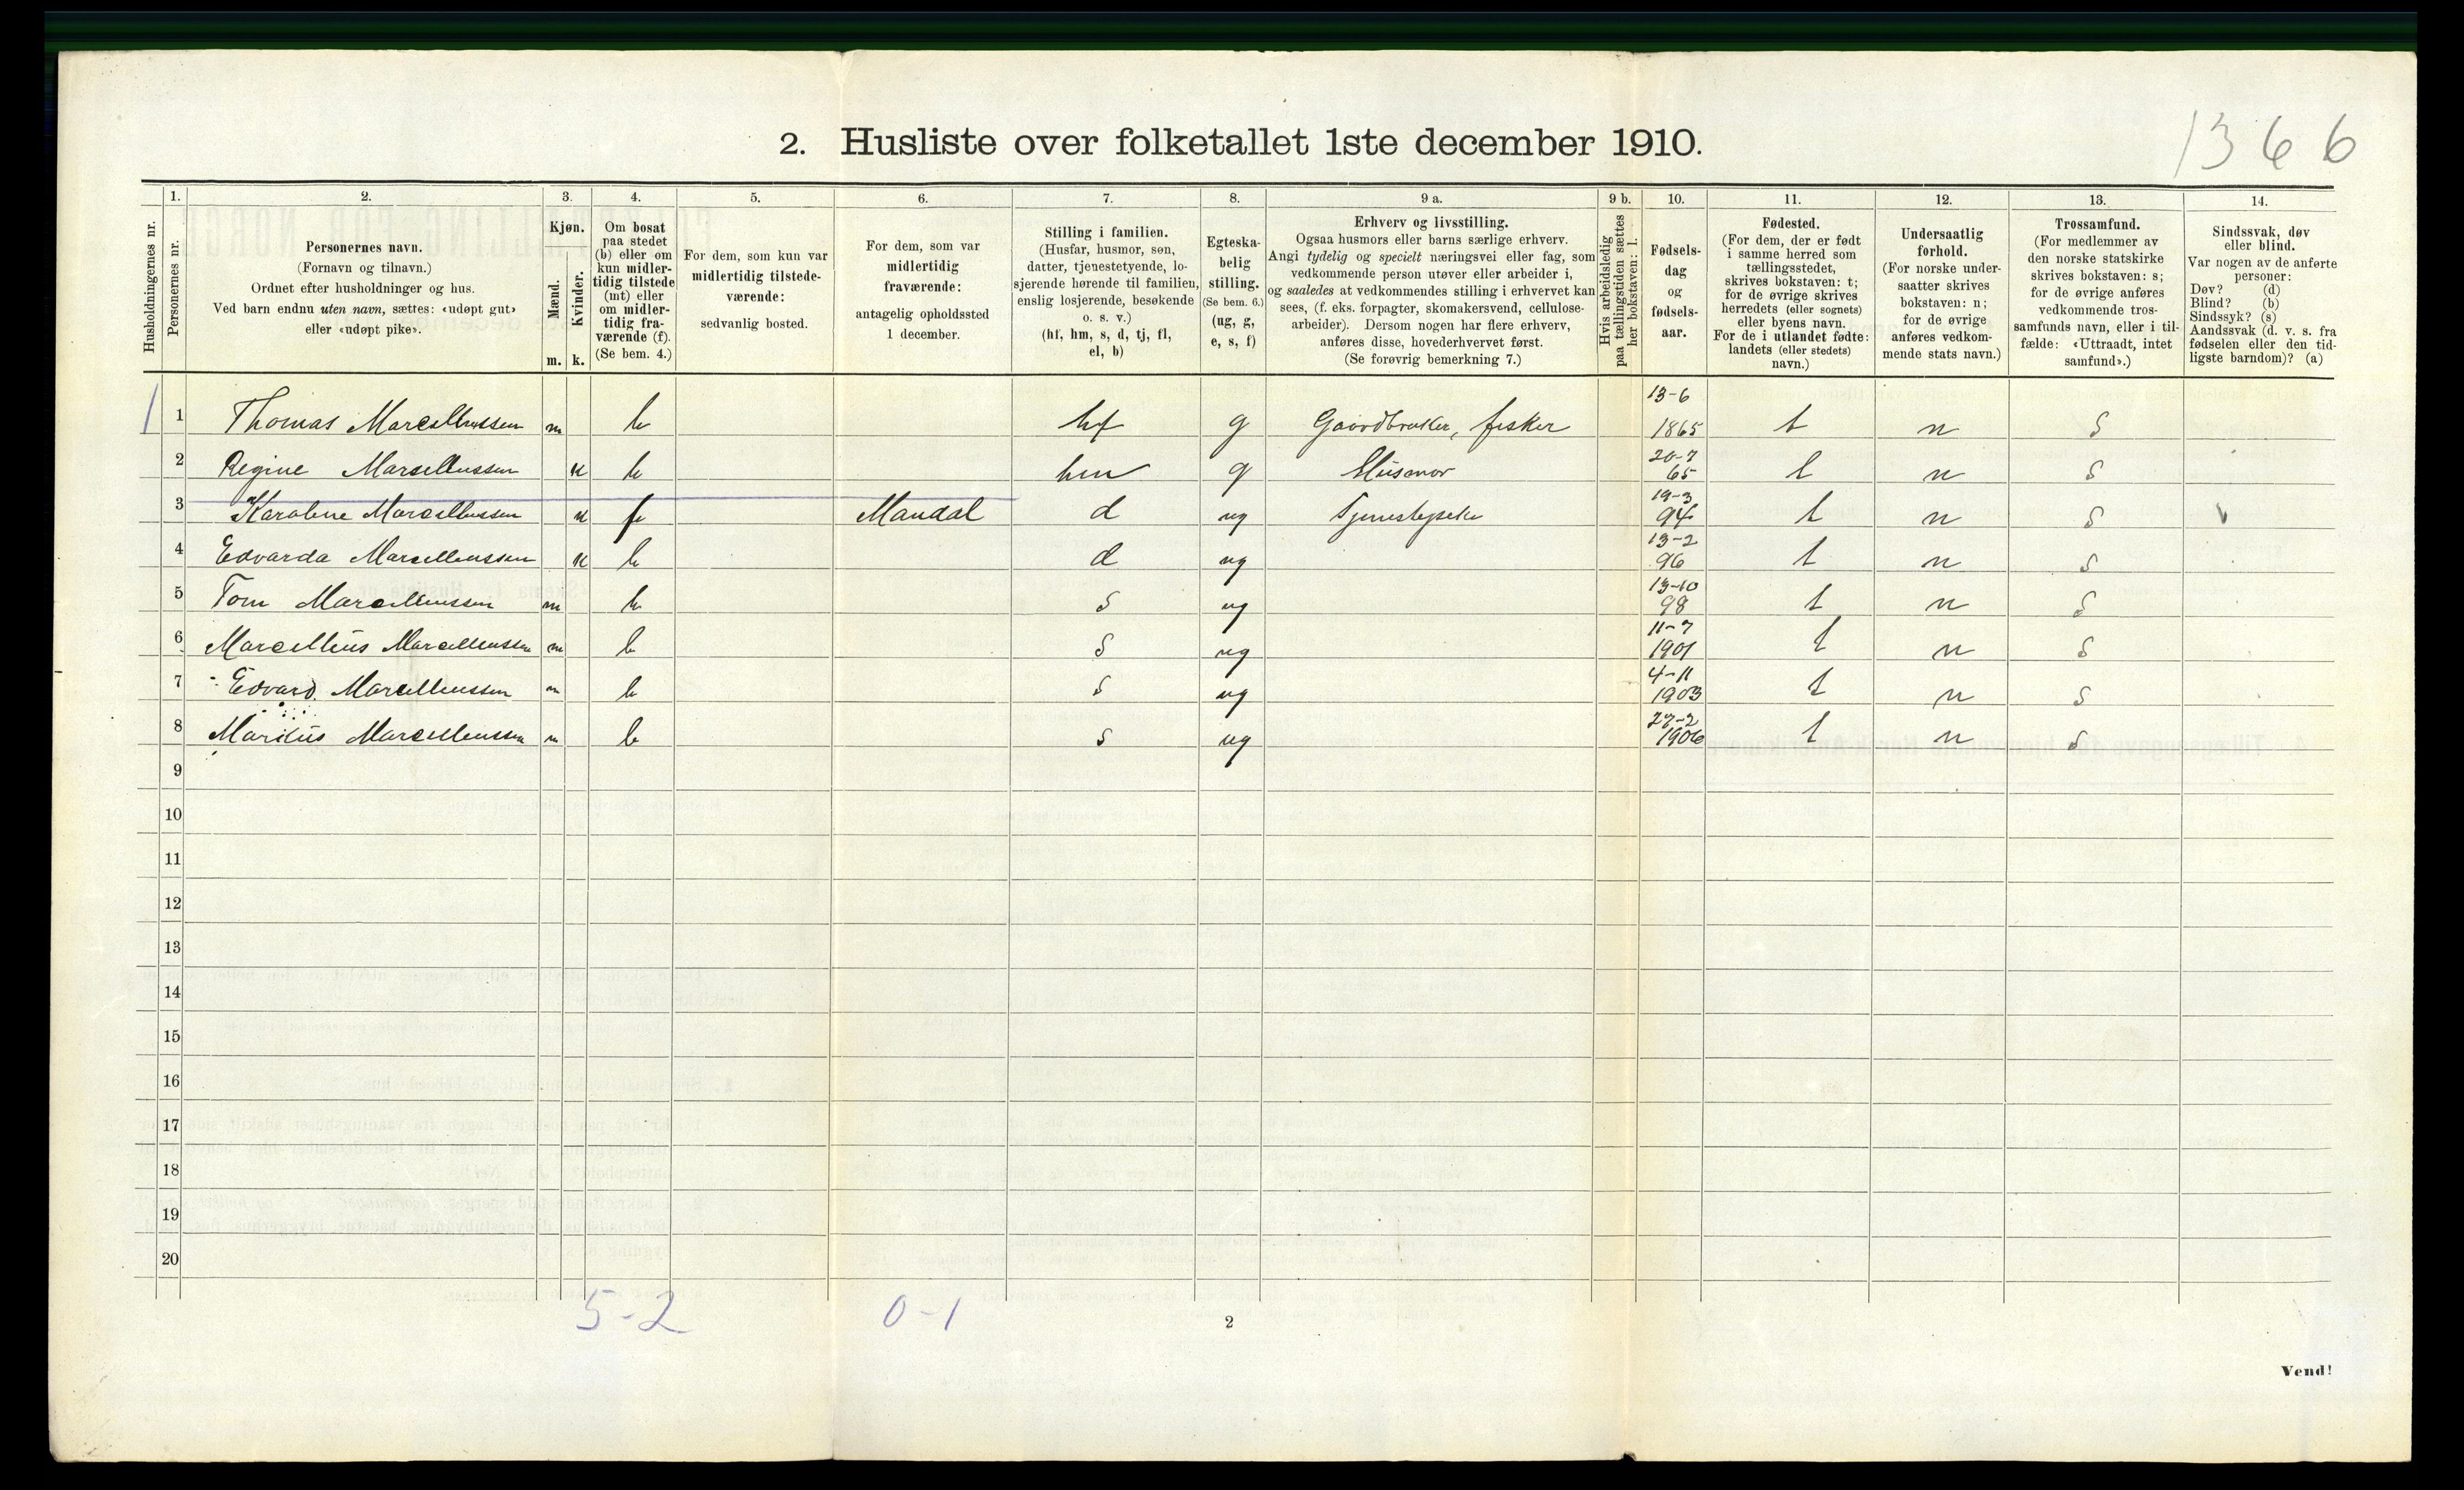 1366
2. Husliste over folketallet 1ste december 1910.
Husholdningernes nr.
1. Personernes nr.
2. Personernes navn.
(Fornavn og tilnavn.)
Ordnet efter husholdninger og hus.
Ved barn endnu uten navn, sættes: «udøpt gut»
eller «udøpt pike».
3. Kjøn.
Mænd. m.
Kvinder. k.
4. Om bosat
paa stedet
(b) eller om
kun midler-
tidig tilstede
(mt) eller
om midler-
tidig fra-
værende (f).
(Se bem. 4.)
5. For dem, som kun var
midlertidig tilstede-
værende:
sedvanlig bosted.
6. For dem, som var
midlertidig
fraværende:
antagelig opholdssted
1 december.
7. Stilling i familien.
(Husfar, husmor, søn,
datter, tjenestetyende, lo-
sjerende hørende til familien,
enslig losjerende, besøkende
o. s. v.)
(hf, hm, s, d, tj, fl,
el, b)
8. Egteska-
belig
stilling.
(Se bem. 6.)
(ug, g,
e, s, f)
9 a. Erhverv og livsstilling.
Ogsaa husmors eller barns særlige erhverv.
Angi tydelig og specielt næringsvei eller fag, som
vedkommende person utøver eller arbeider i,
og saaledes at vedkommendes stilling i erhvervet kan
sees, (f. eks. forpagter, skomakersvend, cellulose-
arbeider). Dersom nogen har flere erhverv,
anføres disse, hovederhvervet først.
(Se forøvrig bemerkning 7.)
9 b. Hvis arbeidsledig
paa tællingstiden sættes
her bokstaven: l.
10. Fødsels-
dag
og
fødsels-
aar.
11. Fødested.
(For dem, der er født
i samme herred som
tællingsstedet,
skrives bokstaven: t;
for de øvrige skrives
herredets (eller sognets)
eller byens navn.
For de i utlandet fødte:
landets (eller stedets)
navn.)
12. Undersaatlig
forhold.
(For norske under-
saatter skrives
bokstaven: n;
for de øvrige
anføres vedkom-
mende stats navn.)
13. Trossamfund.
(For medlemmer av
den norske statskirke
skrives bokstaven: s;
for de øvrige anføres
vedkommende tros-
samfunds navn, eller i til-
fælde: «Uttraadt, intet
samfund».)
14. Sindssvak, døv
eller blind.
Var nogen av de anførte
personer:
Døv? (d)
Blind? (b)
Sindssyk? (s)
Aandssvak (d. v. s. fra
fødselen eller den tid-
ligste barndom)? (a)
1 1 Thomas Marcellussen m b hf g Gaardbruker, fisker 13-6 1865 t n s
2 Regine Marsellussen k b hm g Husmor 20-7 65 t n s
3 Karoline Marcellussen k f Mandal d ug Tjenestepike 19-3 94 t n s
4 Edvarda Marcellenssen k b d ug 13-2 96 t n s
5 Tom Marcellenssen m b s ug 13-10 98 t n s
6 Marcellius Marcellenssen m b s ug 11-7 1901 t n s
7 Edvard Marcellenssen m b s ug 4-11 1903 t n s
8 Marius Marcellenssen m b s ug 27-2 1906 t n s
9
10
11
12
13
14
15
16
17
18
19
20
5-2 0-1
2
Vend!